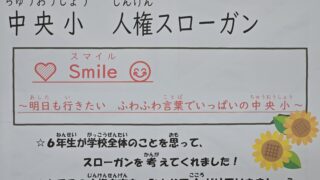 ちゅうおうしょう じんけん
中央小 人権スローガン
スマイル
♡ Smile 😊
あした い ことば ちゅうおうしょう
～明日も行きたい ふわふわ言葉でいっぱいの中央小～
ねんせい がっこうぜんたい おも
☆6年生が学校全体のことを思って、
かんが
スローガンを考えてくれました！